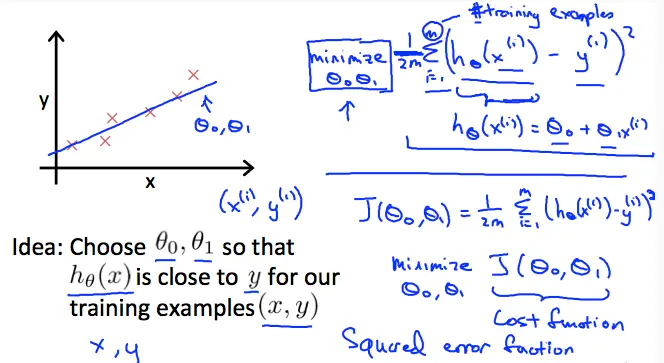 #training examples
minimize
θ₀ θ₁
1/2m Σᵢ₌₁ᵐ (h_θ(x⁽ⁱ⁾) - y⁽ⁱ⁾)²
h_θ(x⁽ⁱ⁾) = θ₀ + θ₁x⁽ⁱ⁾
y
θ₀, θ₁
x
(x⁽ⁱ⁾, y⁽ⁱ⁾)
J(θ₀, θ₁) = 1/2m Σᵢ₌₁ᵐ (h_θ(x⁽ⁱ⁾) - y⁽ⁱ⁾)²
Idea: Choose θ₀, θ₁ so that
h_θ(x) is close to y for our
training examples (x, y)
x, y
minimize J(θ₀, θ₁)
θ₀, θ₁
Cost function
Squared error function